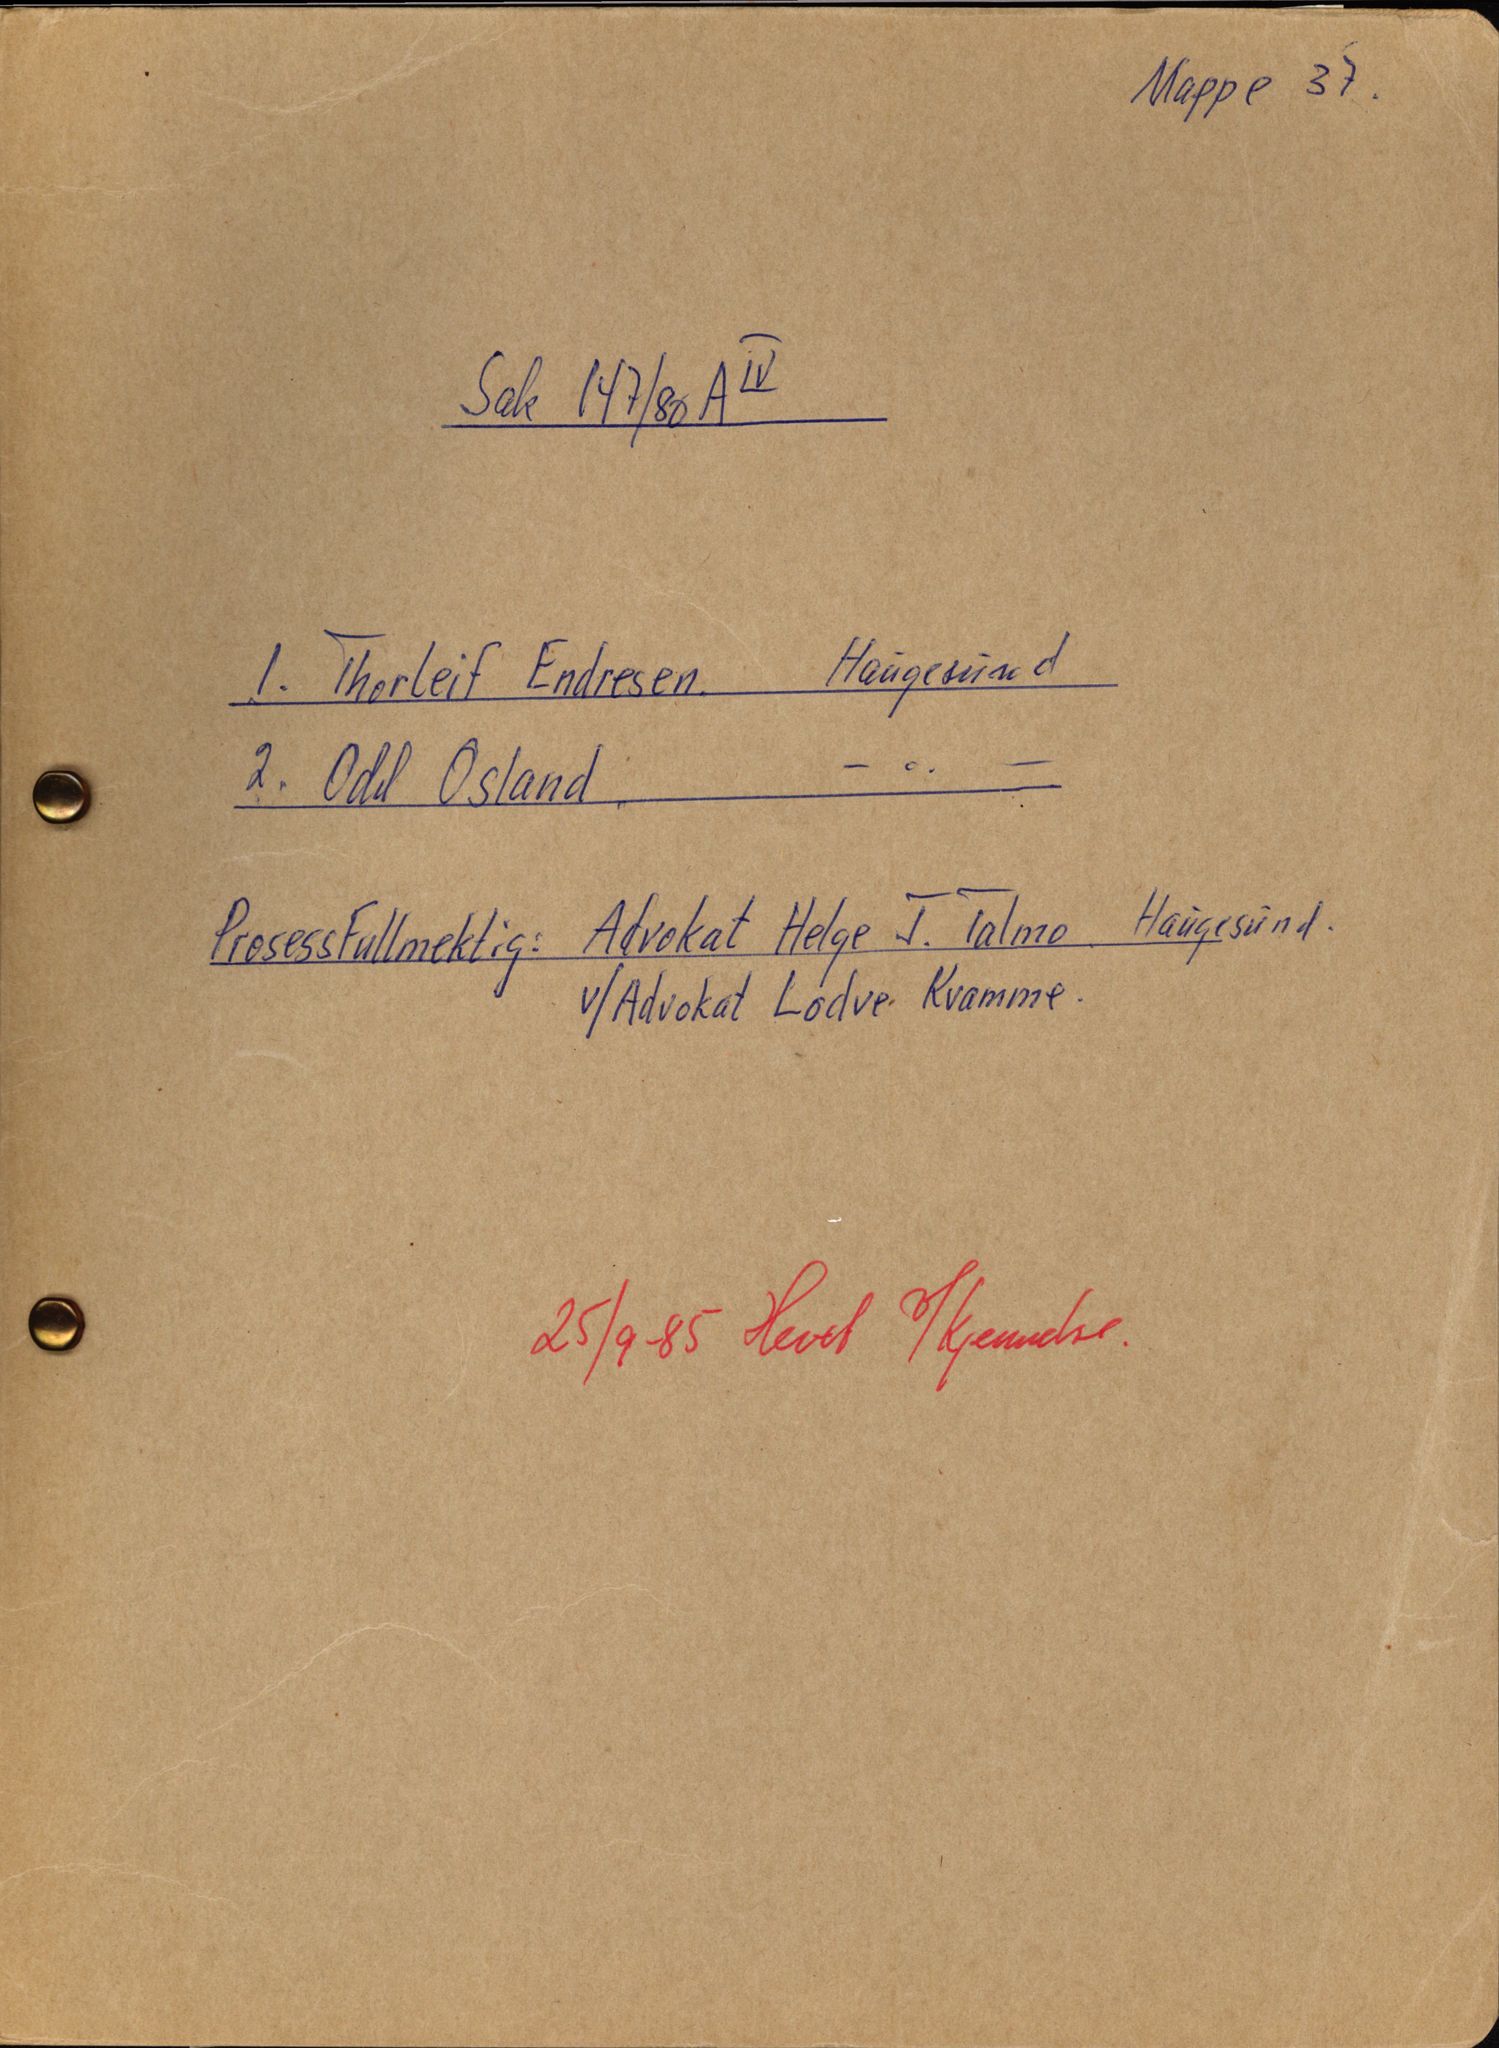 Mappe 37.
Sak 147/80 A IV
1. Thorleif Endresen. Haugesund
2. Odd Osland. — " —
Prosessfullmektig: Advokat Helge T. Talmo. Haugesund.
v/Advokat Lodve Kvamme.
25/9-85 Hevet v/kjennelse.